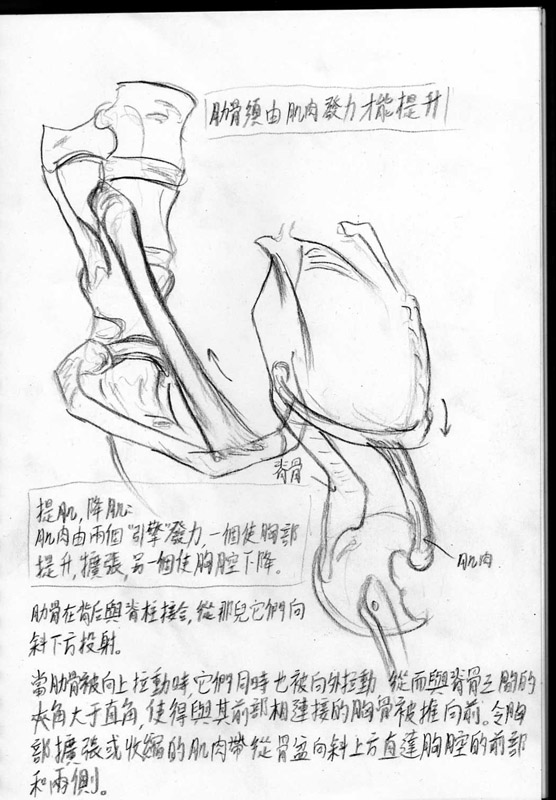 肋骨須由肌肉發力才能提升
脊骨
肌肉
提肌,降肌:
肌肉由兩個"引擎"發力,一個使胸部
提升,擴張,另一個使胸腔下降。
肋骨在背后與脊柱接合,從那兒它們向
斜下方投射。
當肋骨被向上拉動時,它們同時也被向外拉動 從而與脊骨之間的
夾角大于直角,使得與其前部相連接的胸骨被推向前。令胸
部擴張或收縮的肌肉帶從骨盆向斜上方直達胸腔的前部
和兩側。